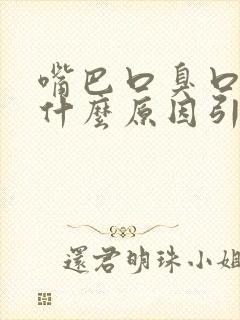 嘴巴口臭口
什麼原因引
還君明珠小姐